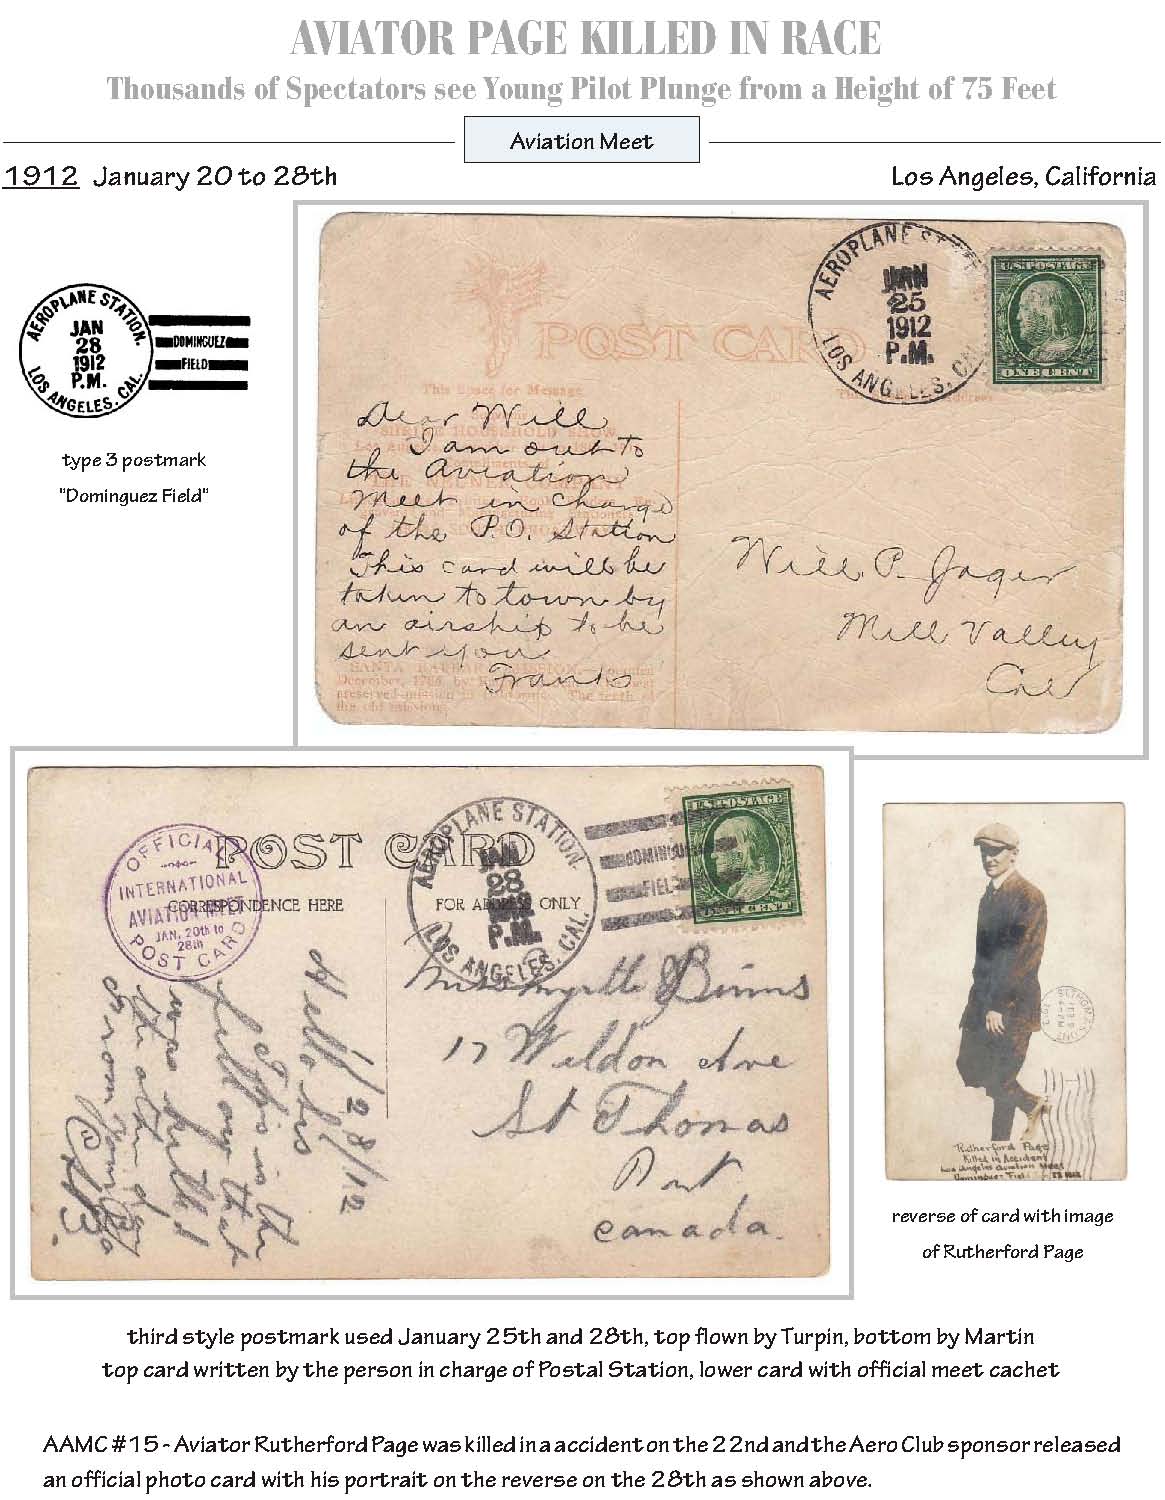 AVIATOR PAGE KILLED IN RACE
Thousands of Spectators see Young Pilot Plunge from a Height of 75 Feet
Aviation Meet
1912 January 20 to 28th
Los Angeles, California
AEROPLANE STATION.
JAN
28
1912
P.M.
LOS ANGELES, CAL.
DOMINGUEZ
FIELD
type 3 postmark
"Dominguez Field"
POST CARD
This Space for Message
AEROPLANE
JAN
25
1912
P.M.
LOS ANGELES, CAL
U.S. POSTAGE
ONE CENT
Dear Will
I am out to
the Aviation
Meet in charge
of the P.O. Station
This card will be
taken to town by
an airship to be
sent you
Frank
HOUSEHOLD SHOW
SANTA BARBARA MISSION
December, 1786, by
preserved mission in
the old missions
Will. P. Jager
Mill Valley
Cal
OFFICIAL
INTERNATIONAL
AVIATION MEET
JAN. 20th to
28th
POST CARD
POST CARD
CORRESPONDENCE HERE
FOR ADDRESS ONLY
AEROPLANE STATION.
JAN
28
1912
P.M.
LOS ANGELES, CAL.
DOMINGUEZ
FIELD
U.S. POSTAGE
ONE CENT
1/28/12
Hello Sis
This is the
fellow that
was killed
the other day
from
Miss Myrtle Binns
17 Weldon Ave
St Thomas
Ont
Canada.
ST. THOMAS
ONT
Rutherford Page
Killed in Accident
Los Angeles Aviation Meet
Dominguez Field 1912
reverse of card with image
of Rutherford Page
third style postmark used January 25th and 28th, top flown by Turpin, bottom by Martin
top card written by the person in charge of Postal Station, lower card with official meet cachet
AAMC #15 - Aviator Rutherford Page was killed in a accident on the 22nd and the Aero Club sponsor released
an official photo card with his portrait on the reverse on the 28th as shown above.